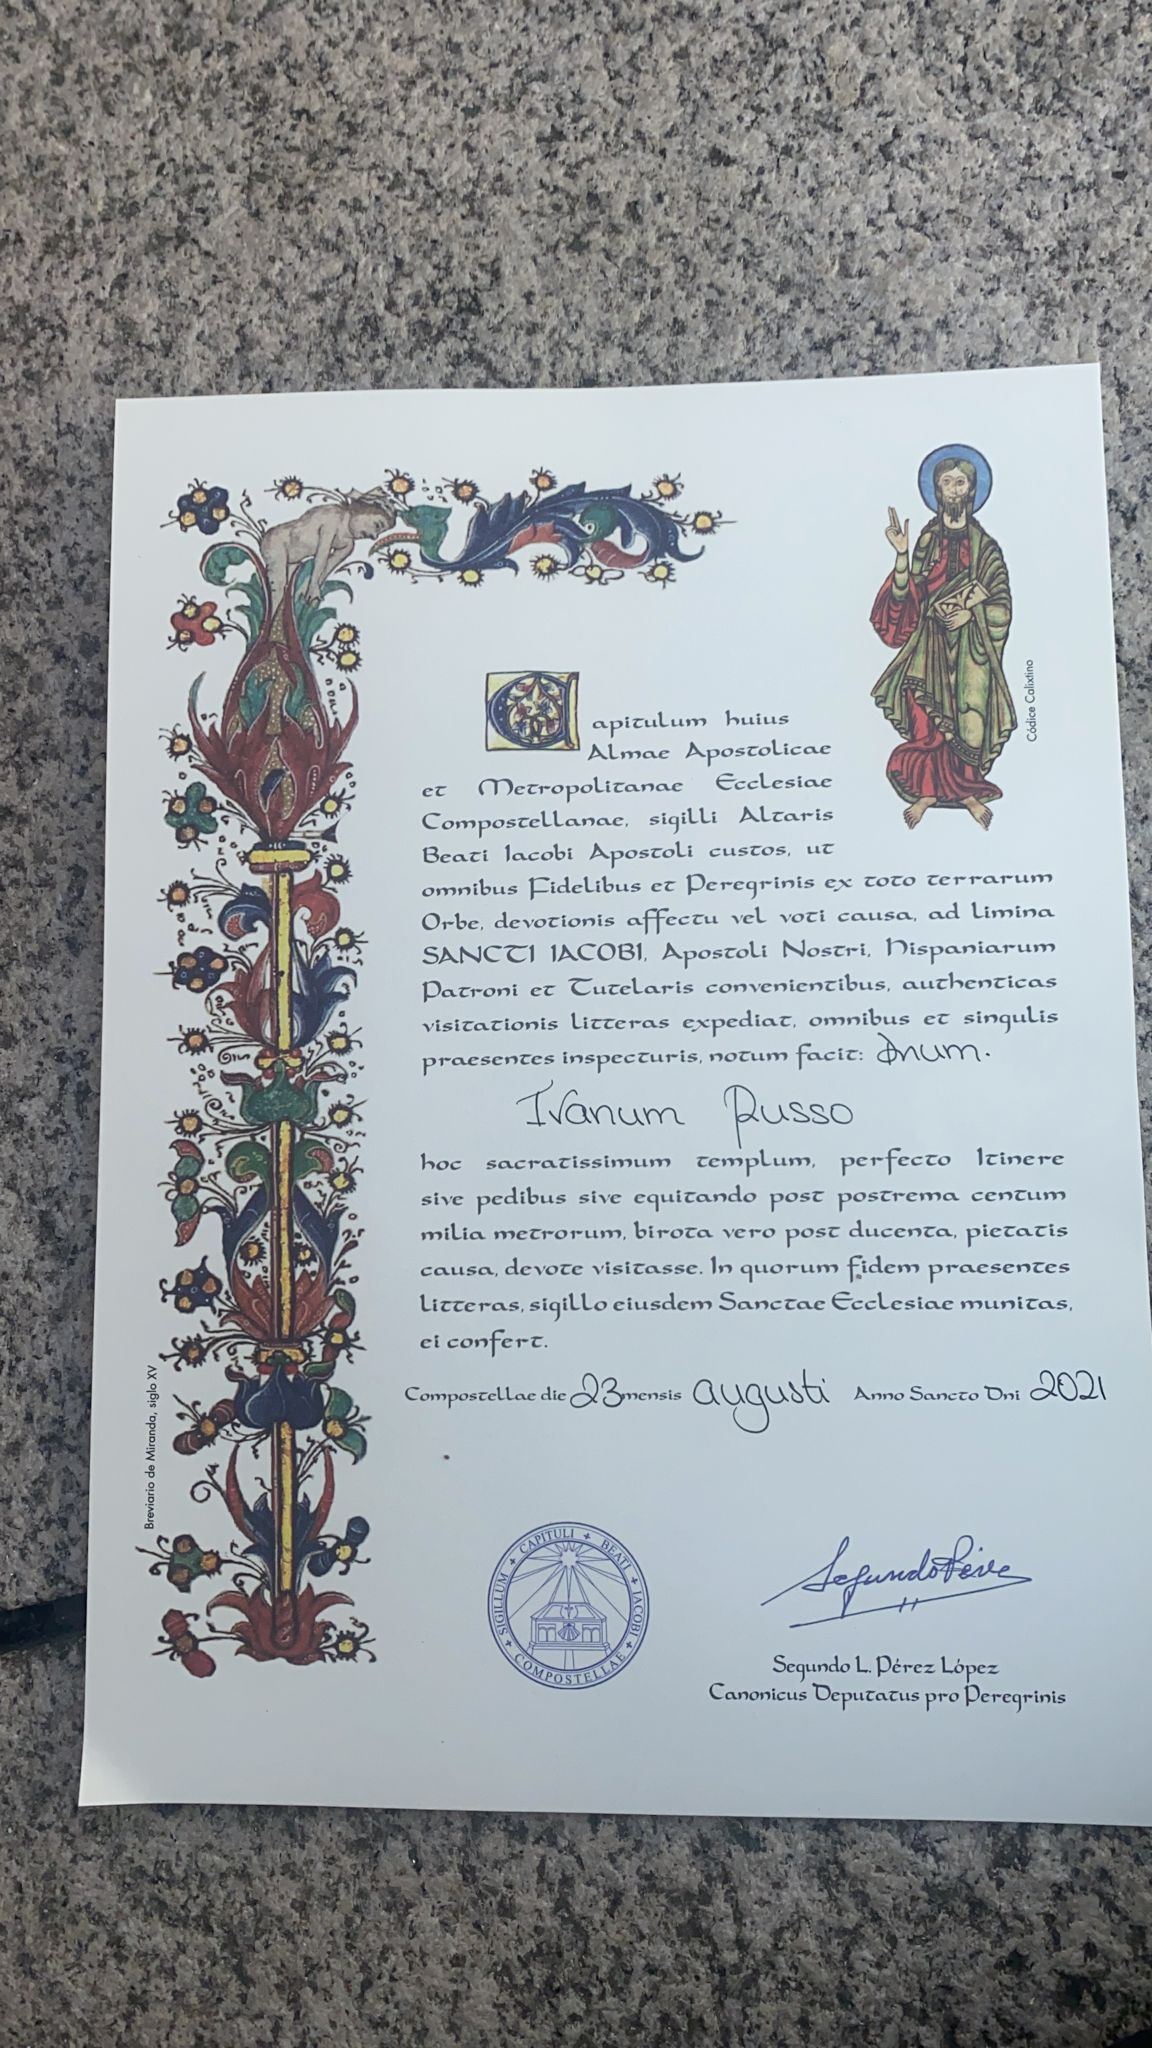 Capitulum huius
Almae Apostolicae
et Metropolitanae Ecclesiae
Compostellanae, sigilli Altaris
Beati Iacobi Apostoli custos, ut
omnibus Fidelibus et Peregrinis ex toto terrarum
Orbe, devotionis affectu vel voti causa, ad limina
SANCTI IACOBI, Apostoli Nostri, Hispaniarum
Patroni et Tutelaris convenientibus, authenticas
visitationis litteras expediat, omnibus et singulis
praesentes inspecturis, notum facit: Dnum.
Ivanum Russo
hoc sacratissimum templum, perfecto Itinere
sive pedibus sive equitando post postrema centum
milia metrorum, birota vero post ducenta, pietatis
causa, devote visitasse. In quorum fidem praesentes
litteras, sigillo eiusdem Sanctae Ecclesiae munitas,
ei confert.
Compostellae die 23 mensis augusti Anno Sancto Dni 2021
SIGILLUM + CAPITULI + BEATI + IACOBI + COMPOSTELLAE +
Segundo Pérez
Segundo L. Pérez López
Canonicus Deputatus pro Peregrinis
Códice Calixtino
Breviario de Miranda, siglo XV